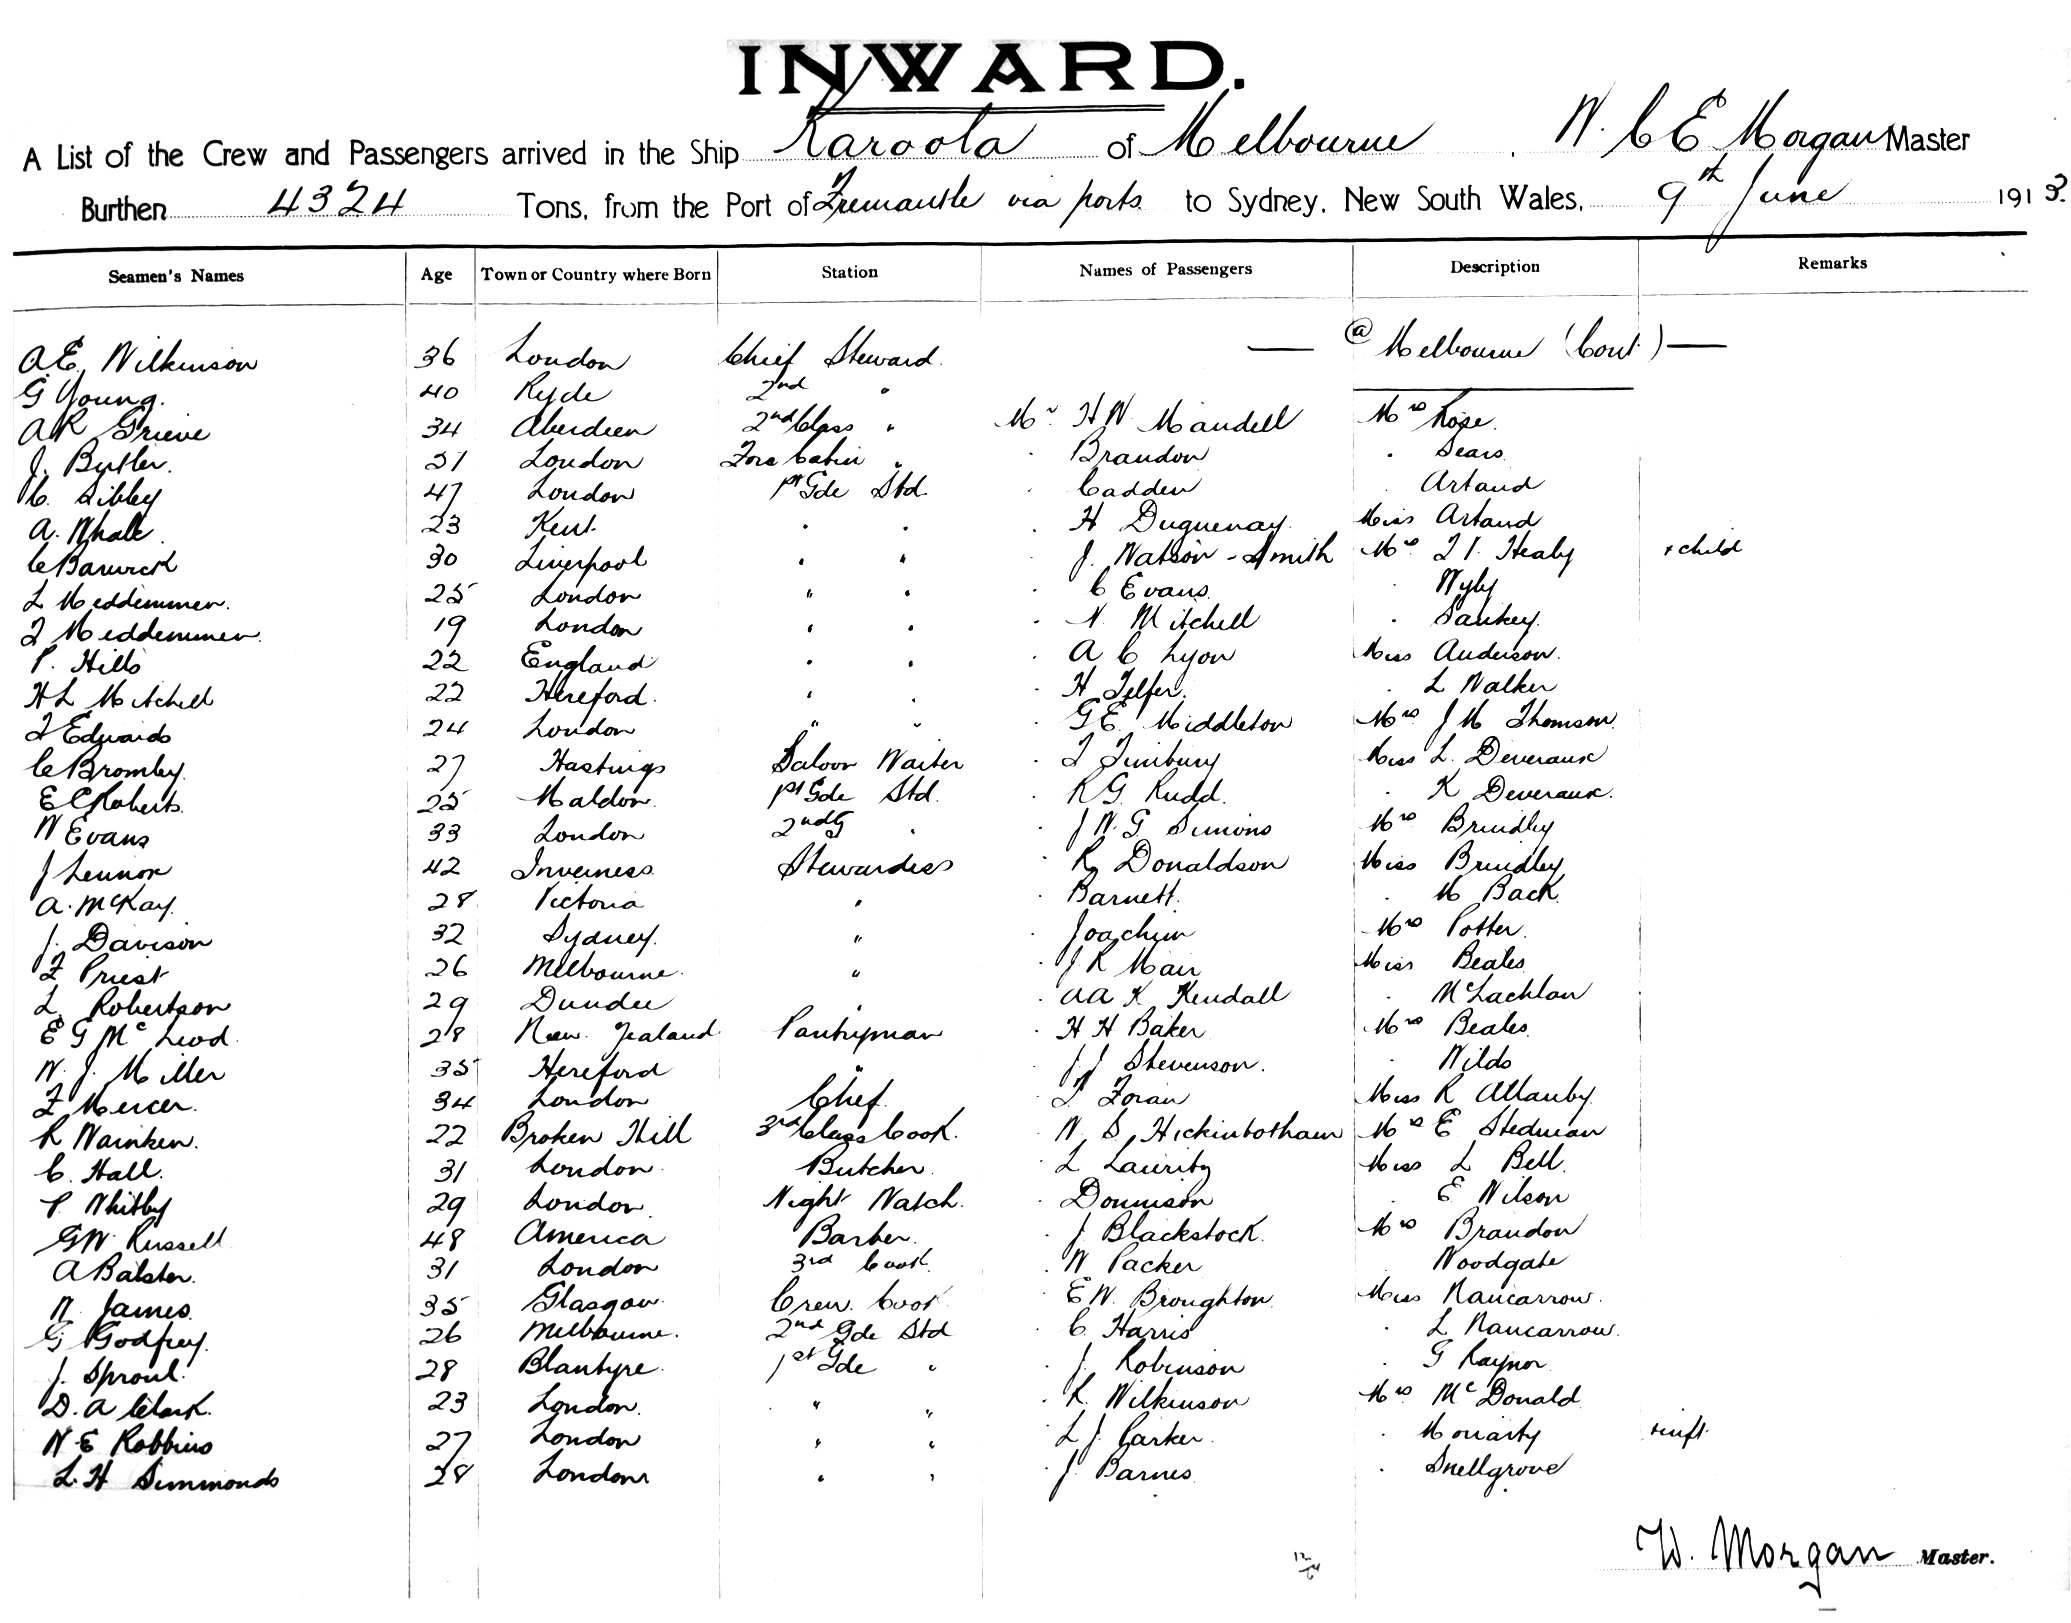 INWARD.
A List of the Crew and Passengers arrived in the Ship Karoola of Melbourne W. C E Morgan Master
Burthen 4324 Tons, from the Port of Fremantle via ports to Sydney, New South Wales, 9th June 1913.
Seamen's Names Age Town or Country where Born Station Names of Passengers Description Remarks
A.E. Wilkinson 36 London Chief Steward. — @ Melbourne (Cont.) —
G Young. 40 Ryde 2nd "
A R Grieve 34 Aberdeen 2nd Class " Mr. H W Mandell Mrs Rose.
J. Butler. 31 London Fore Cabin " . Brandon . Sears.
C. Sibley 47 London 1st Gde Std. . Cadden . Artaud
A. Whale. 23 Kent. " " . H Duguenay. Miss Artaud
C Barwick 30 Liverpool " " . J. Watson-Smith Mrs. Healy + child
L Meddemmen. 25 London " " . C Evans. . Wyly
F Meddemmen. 19 London " " . N. Mitchell . Sankey.
P. Hills 22 England " " . A C Lyon Miss Anderson.
H L Mitchell 22 Hereford. " " . H Telfer. . L Walker
F Edwards 24 London " " . G.E. Middleton Mrs J M Thomson.
C Bromley. 27 Hastings Saloon Waiter . T Timbury Miss L. Deveraux
E C Roberts. 25 Maldon. 1st Gde Std. . R G. Rudd. . K Deveraux.
W Evans 33 London 2nd G " . J W. G. Simons Mrs Brindley
J Lennox 42 Inverness. Stewardess . R Donaldson Miss Brindley
A. McKay. 28 Victoria " . Barnett. . M Back.
J. Davison 32 Sydney. " . Joachim Mrs Potter.
F Priest 26 Melbourne. " . J R Mair Miss Beales
L. Robertson 29 Dundee " . A A K Kendall . McLachlan
E G McLeod. 28 New Zealand Pantryman . H H Baker Mrs Beales
W. J. Miller 35 Hereford " . J. J Stevenson. . Wilds
F Mercer. 34 London Chef . T Foran Miss R Allanby.
R Wainken. 22 Broken Hill 3rd Class Cook. . W. S. Hickinbotham Mrs E Stedman
C. Hall. 31 London Butcher. . L Lauritz Miss L Bell.
P. Whitby 29 London. Night Watch. . Donnison . E Wilson
G W Russell 48 America Barber. . J Blackstock. Mrs Brandon
A Balster. 31 London 3rd Cook. . W Packer Woodgate
N. James. 35 Glasgow. Crew Cook . E W. Broughton. Miss Nancarrow.
G Godfrey. 26 Melbourne. 2nd Gde Std . C Harris . L Nancarrow.
J. Sproul. 28 Blantyre. 1st Gde " . J. Robinson . G Raynor.
D. A Clark. 23 London. " " . R. Wilkinson Mrs McDonald.
W. E Robbins 27 London " " . L J. Carker. . Moriarty + inft.
L. H Simmonds 28 London " " . J Barnes . Snellgrove
W. Morgan Master.